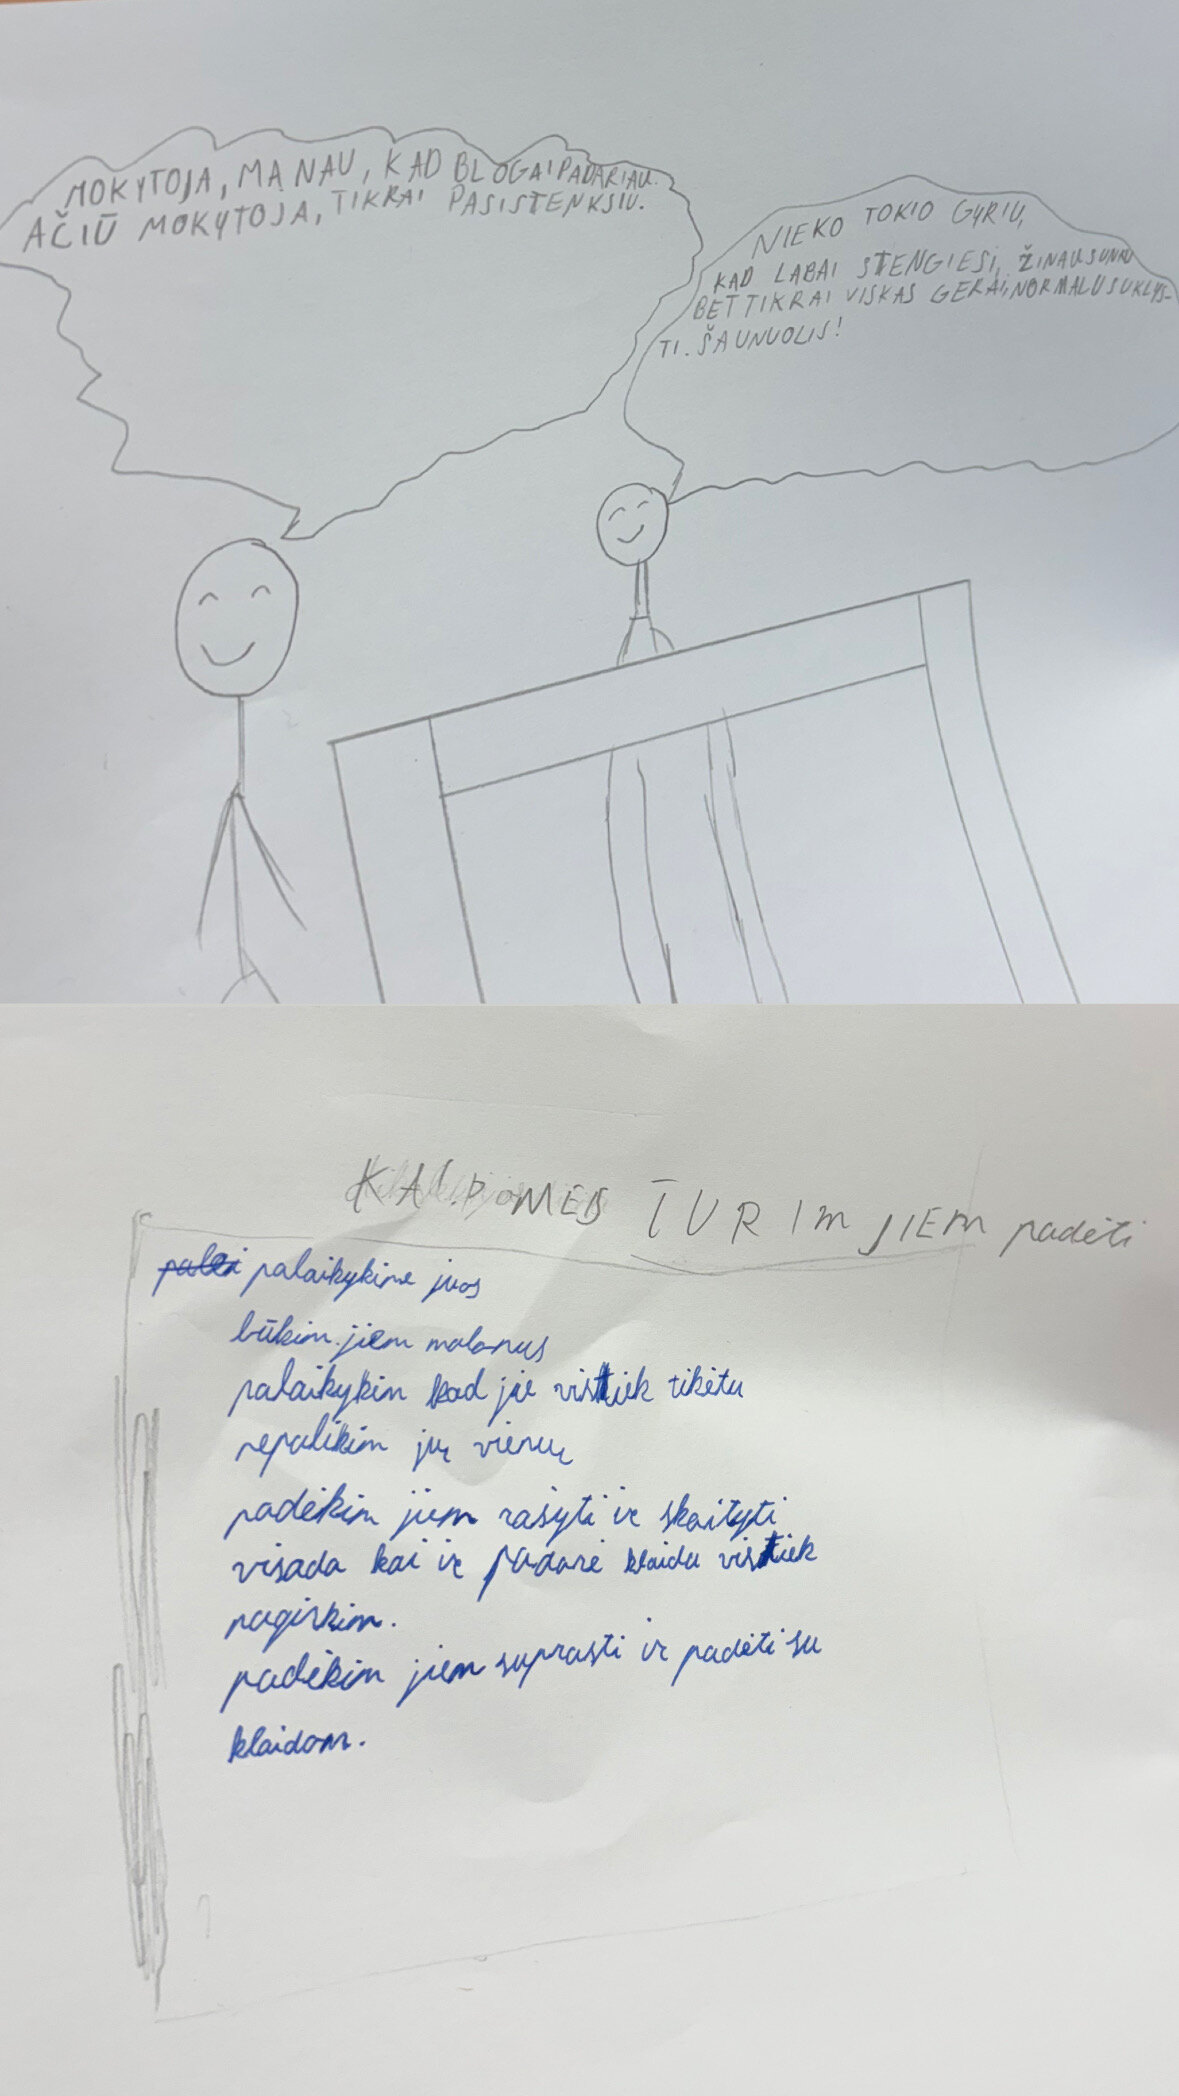 MOKYTOJA, MANAU, KAD BLOGAI PADARIAU.
AČIŪ MOKYTOJA, TIKRAI PASISTENKSIU.
NIEKO TOKIO GYRIU,
KAD LABAI STENGIESI, ŽINAU SUNKU
BET TIKRAI VISKAS GERAI, NORMALU SUKLYS-
TI. ŠAUNUOLIS!
KAIP MES TURIM JIEM padėti
palaikykime juos
būkim jiem malonus
palaikykim kad jie vistiek tikėtu
nepalikim jų vienų
padėkim jiem rašyti ir skaityti
visada kai ir padarė klaida vistiek
pagirkim.
padėkim jiem suprasti ir padėti su
klaidom.